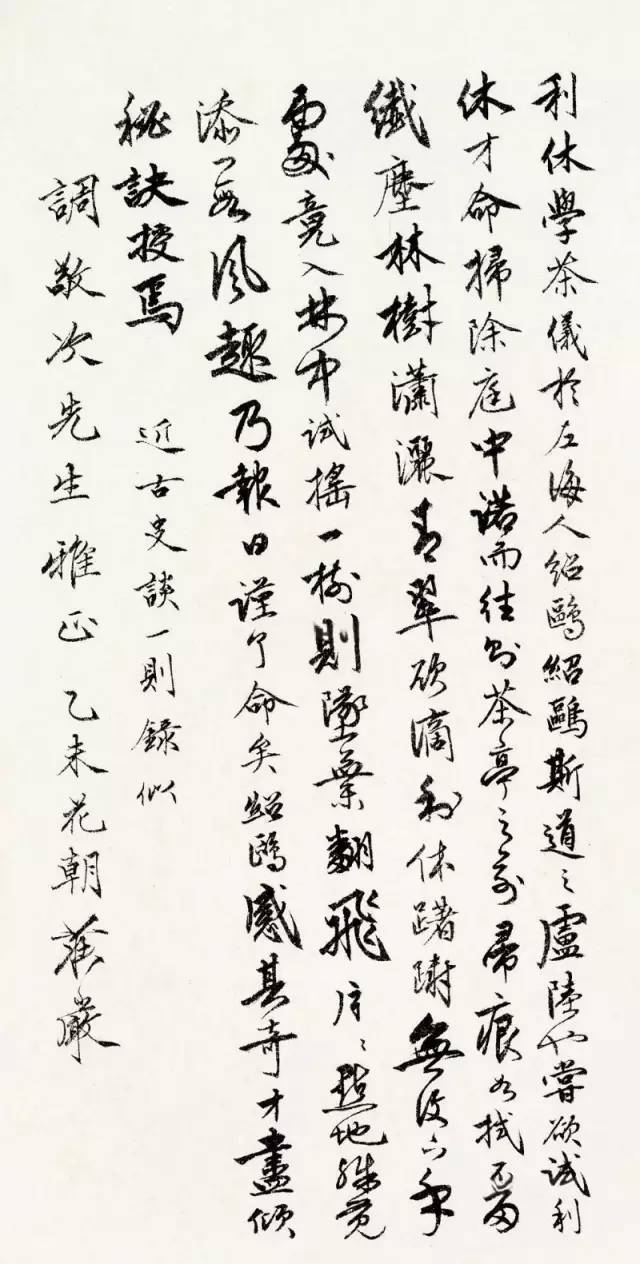 利休學茶儀於左海人紹鷗紹鷗斯道之盧陸也嘗欲試利
休才命掃除庭中諾而往到茶亭之前帚痕如拭不留
纖塵林樹瀟灑青翠欲滴利休躊躇無復下手
處竟入林中試搖一樹則墜葉翻飛片々點地殊覺
添一段風趣乃報曰謹了命矣紹鷗感其奇才盡傾
秘訣授焉
近古史談一則録似
調敬次先生雅正 乙未花朝 蘇嚴